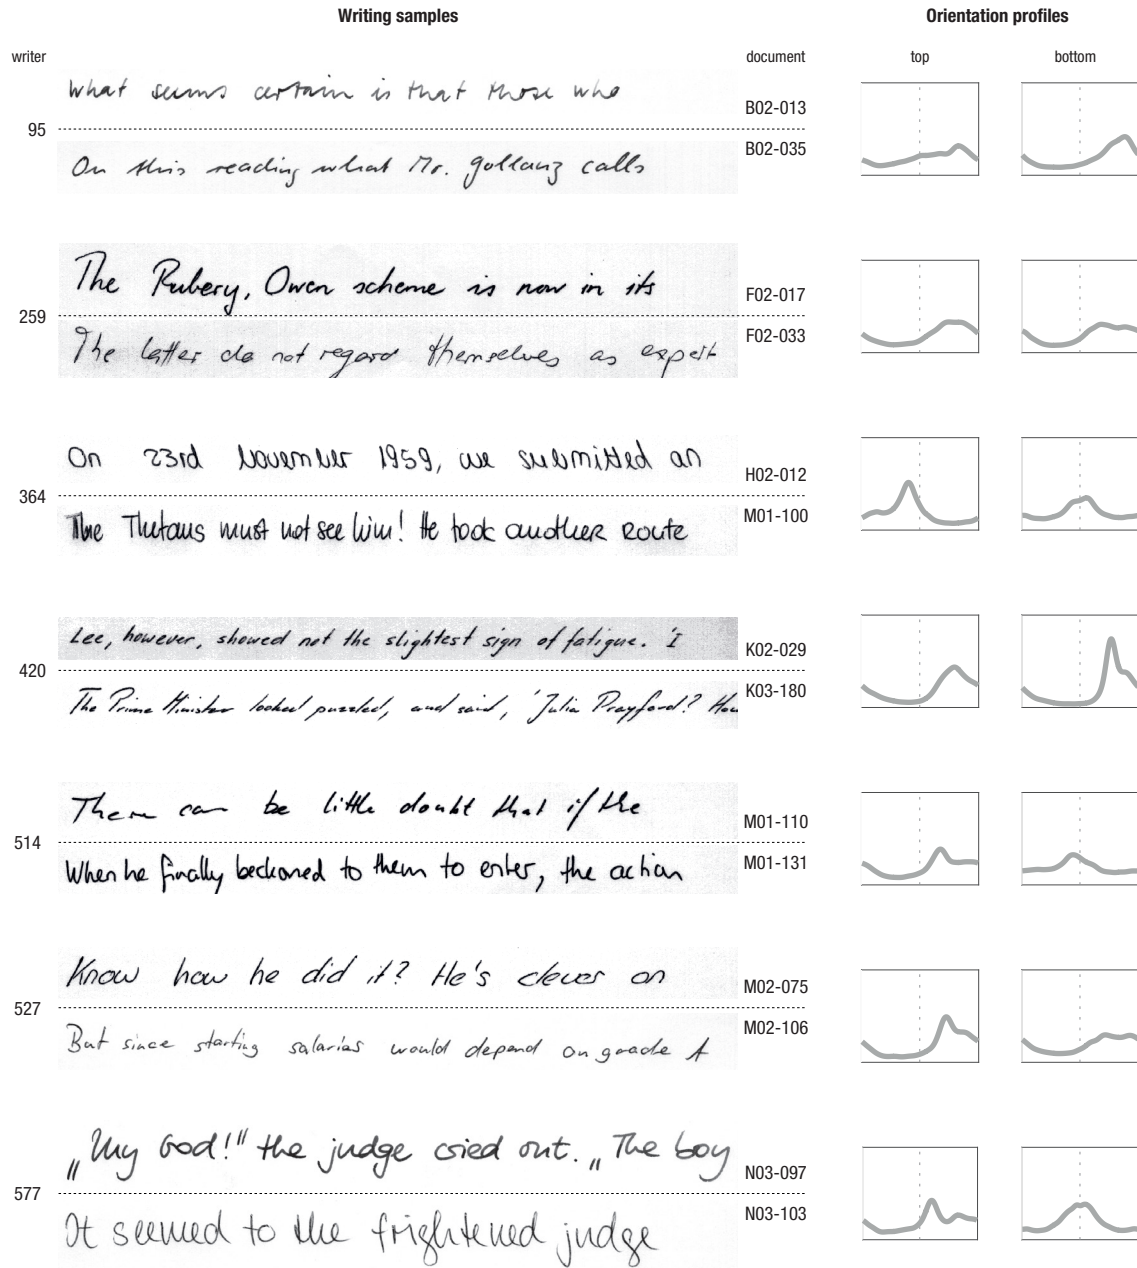 Writing samples Orientation profiles
writer document top bottom
What seems certain is that those who
B02-013
95
B02-035
On this reading what Mr. Gollanz calls
The Rubery, Owen scheme is now in its
F02-017
259
F02-033
The latter do not regard themselves as expert
On 23rd November 1959, we submitted an
H02-012
364
M01-100
The Thetans must not see him! He took another Route
Lee, however, showed not the slightest sign of fatigue. 'I
K02-029
420
K03-180
The Prime Minister looked puzzled, and said, 'Julia Prayford? How
There can be little doubt that if the
M01-110
514
M01-131
When he finally beckoned to them to enter, the action
Know how he did it? He's clever on
M02-075
527
M02-106
But since starting salaries would depend on grade A
„My God!" the judge cried out. „The boy
N03-097
577
N03-103
It seemed to the frightened judge